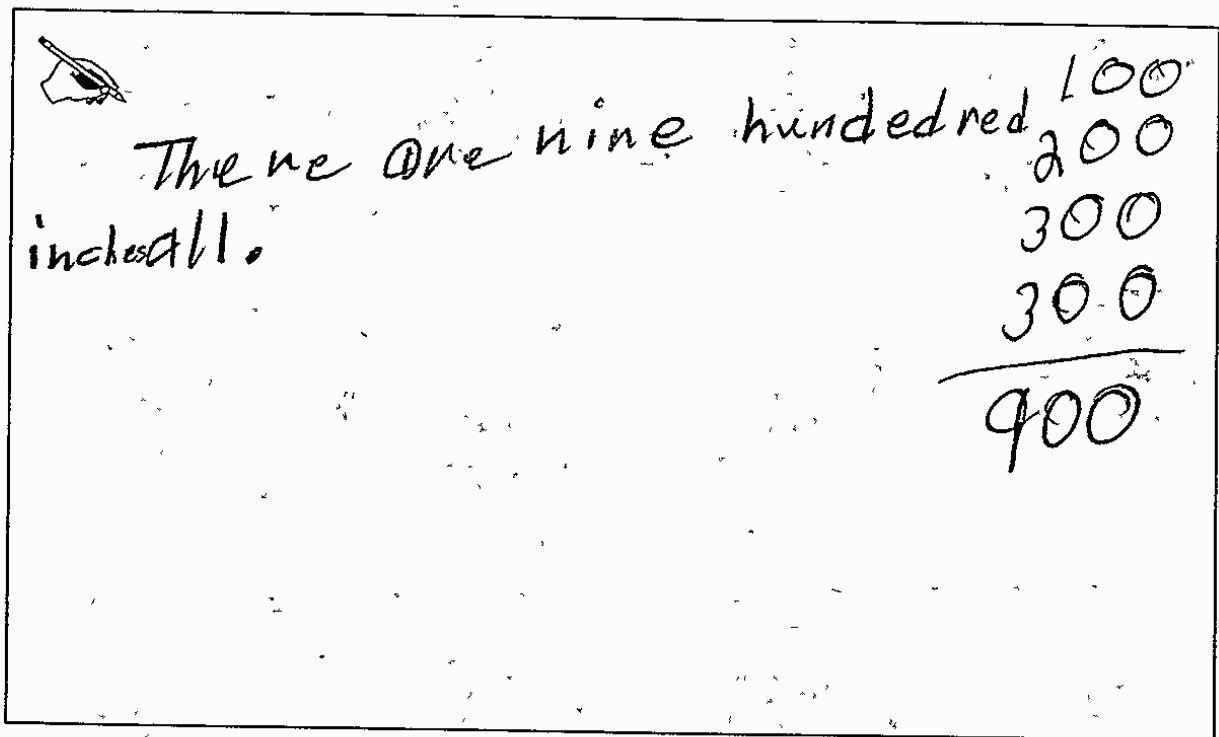 There are nine hundedred
inches all.
100
200
300
300
900